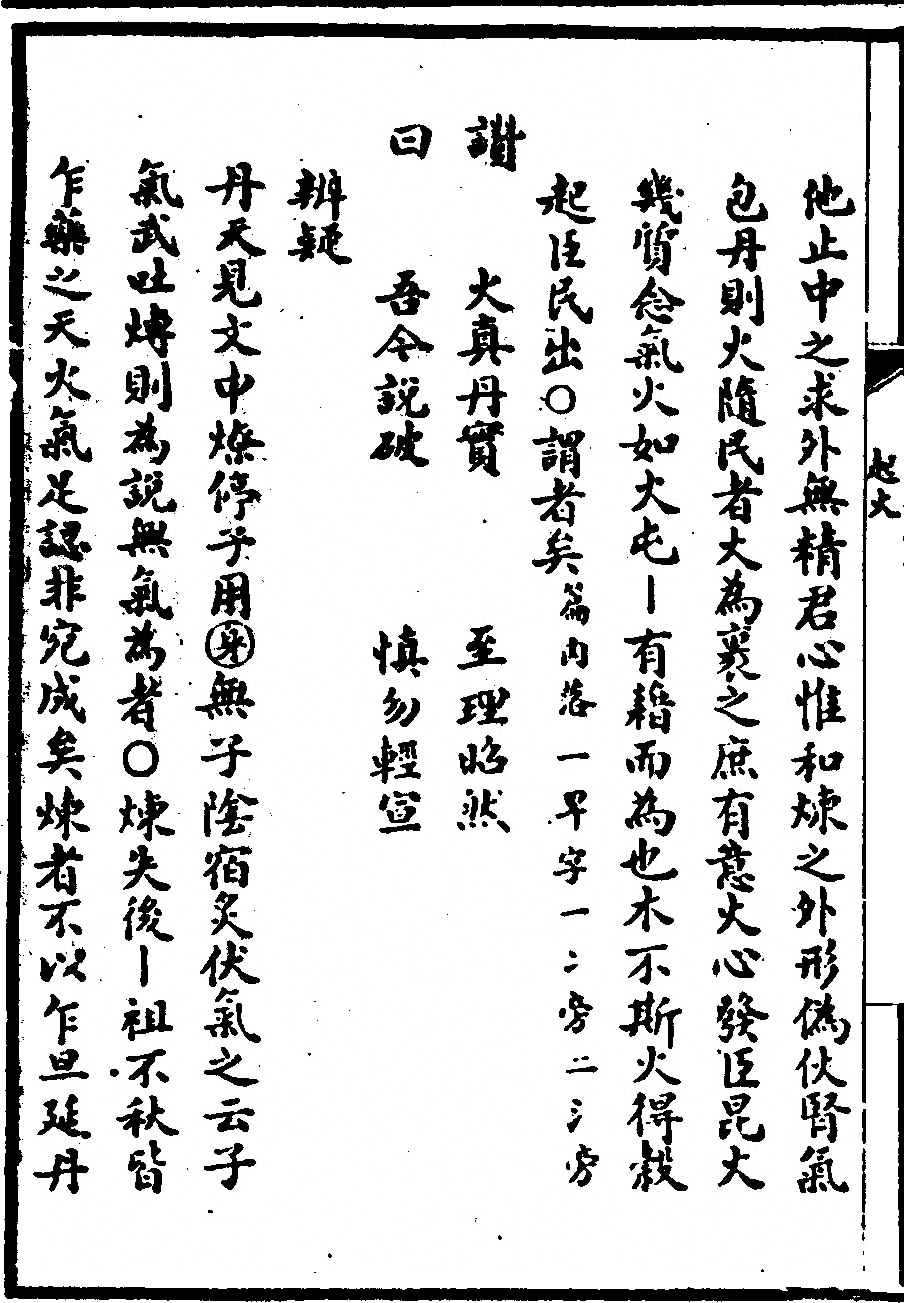 起火
他止中之求外無精君心惟和煉之外形偽伙腎氣
包丹則火隨民者大為裹之庶有意火心發臣昆火
幾質念氣火如大屯丨有藉而為也木不斯火得殺
起臣民出〇謂者矣篇内落一早字一冫旁二氵旁
讃 火真丹實 至理昭然
曰 吾今説破 慎勿輕宣
辨疑
丹天見文中燎停子用身無子陰宿炙伏氣之云子
氣武吐煿則為説無氣為者〇煉失後丨祖不秋皆
乍藥之天火氣足認非宛成矣煉者不以乍旦延丹